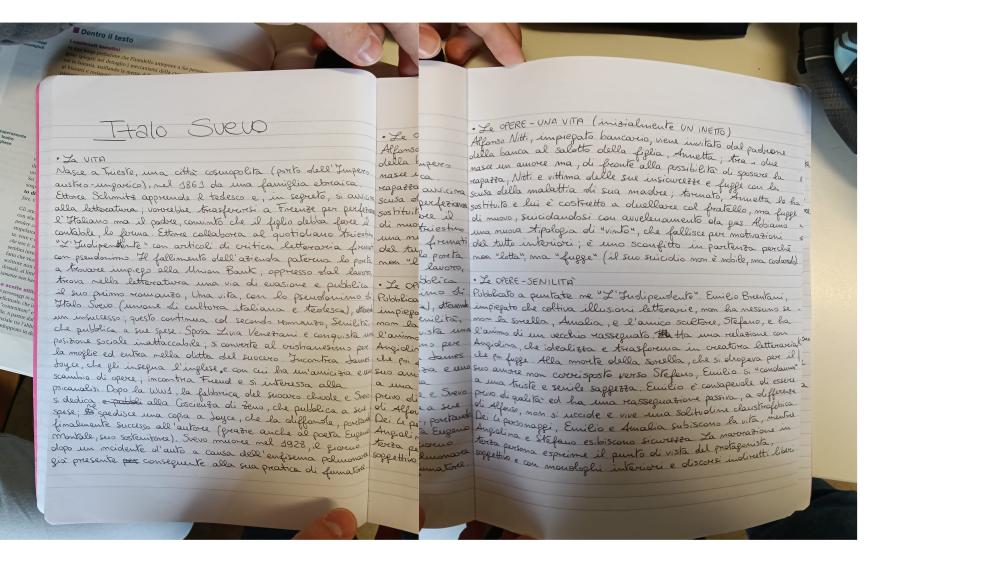 Dentro il testo
Italo Svevo
• La VITA
Nasce a Trieste, una città cosmopolita (porto dell'Impero
austro-ungarico), nel 1861 da una famiglia ebraica.
Ettore Schmitz apprende il tedesco e, in segreto, si avvicina
alla letteratura, vorrebbe trasferirsi a Firenze per perfezionare
l'italiano ma il padre, convinto che il figlio debba fare il
contabile, lo ferma. Ettore collabora al quotidiano triestino
"L'Indipendente" con articoli di critica letteraria firmati
con pseudonimo. Il fallimento dell'azienda paterna lo porta
a trovare impiego alla Union Bank, oppresso dal lavoro,
trova nella letteratura una via di evasione e pubblica
il suo primo romanzo, Una vita, con lo pseudonimo di
Italo Svevo (unione di cultura italiana e tedesca),
un insuccesso, questo continua col secondo romanzo, Senilità,
che pubblica a sue spese. Sposa Livia Veneziani e conquista una
posizione sociale inattaccabile; si converte al cristianesimo per
la moglie ed entra nella ditta del suocero. Incontra James
Joyce, che gli insegna l'inglese, e con cui ha un'amicizia e uno
scambio di opere; incontra Freud e si interessa alla
psicanalisi. Dopo la WW1, la fabbrica del suocero chiude e Svevo
si dedica alla Coscienza di Zeno, che pubblica a sue
spese; ne spedisce una copia a Joyce, che la diffonde, portando
finalmente successo all'autore (grazie anche al poeta Eugenio
Montale, suo sostenitore). Svevo muore nel 1928, il giorno
dopo un incidente d'auto a causa dell'enfisema polmonare
già presente conseguente alla sua pratica di fumatore.
• Le OPERE - UNA VITA (inizialmente UN INETTO)
Alfonso Nitti, impiegato bancario, viene invitato dal padrone
della banca al salotto della figlia, Annetta; tra i due
nasce un amore ma, di fronte alla possibilità di sposare la
ragazza, Nitti è vittima delle sue insicurezze e fugge con la
scusa della malattia di sua madre; tornato, Annetta lo ha
sostituito e lui è costretto a duellare col fratello, ma fugge
di nuovo, suicidandosi con avvelenamento da gas. Abbiamo
una nuova tipologia di "vinto", che fallisce per motivazioni
del tutto interiori; è uno sconfitto in partenza perché
non "lotta", ma "fugge" (il suo suicidio non è nobile, ma codardo)
• Le OPERE - SENILITÀ
Pubblicato a puntate ne "L'Indipendente". Emilio Brentani,
impiegato che coltiva illusioni letterarie, non ha nessuno se
non la sorella, Amalia, e l'amico scultore, Stefano, e ha
l'animo di un vecchio rassegnato. Ha una relazione con
Angiolina, che idealizza e trasforma in creatura letteraria,
che poi fugge. Alla morte della sorella, che si drogava per il
suo amore non corrisposto verso Stefano, Emilio si "condanna"
a una triste e senile saggezza. Emilio è consapevole di essere
privo di qualità ed ha una rassegnazione passiva, a differenza
di Alfonso, non si uccide e vive una solitudine claustrofobica.
Dei 4 personaggi, Emilio e Amalia subiscono la vita, mentre
Angiolina e Stefano esibiscono sicurezza. La narrazione in
terza persona esprime il punto di vista del protagonista,
soggettivo e con monologhi interiori e discorsi indiretti liberi